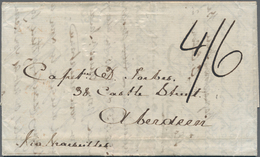 4/6
Capt. D. Forbes.
38 Castle Street
Aberdeen
Via Marseilles